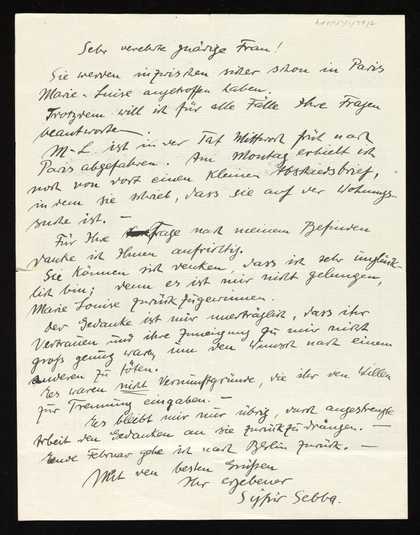 Sehr verehrte gnädige Frau!
Sie werden inzwischen sicher schon in Paris
Marie-Luise angetroffen haben.
Trotzdem will ich für alle Fälle Ihre Fragen
beantworten.
M-L. ist in der Tat Mittwoch früh nach
Paris abgefahren. Am Montag erhielt ich
noch von dort einen kleinen Abschiedsbrief,
in dem sie schrieb, dass sie auf der Wohnungs-
suche ist. —
Für Ihre Frage nach meinem Befinden
danke ich Ihnen aufrichtig.
Sie können sich denken, dass ich sehr unglück-
lich bin; denn es ist mir nicht gelungen,
Marie Louise zurückzugewinnen.
Der Gedanke ist mir unerträglich, dass ihr
Vertrauen und ihre Zuneigung zu mir nicht
groß genug waren, um den Wunsch nach einem
anderen zu töten.
Es waren nicht Vernunftgründe, die ihr den Willen
zur Trennung eingaben. —
Es bleibt mir nur übrig, durch angestrengte
Arbeit den Gedanken an sie zurückzudrängen. —
Ende Februar gehe ich nach Berlin zurück. —
Mit den besten Grüßen
Ihr ergebener
Sebba.